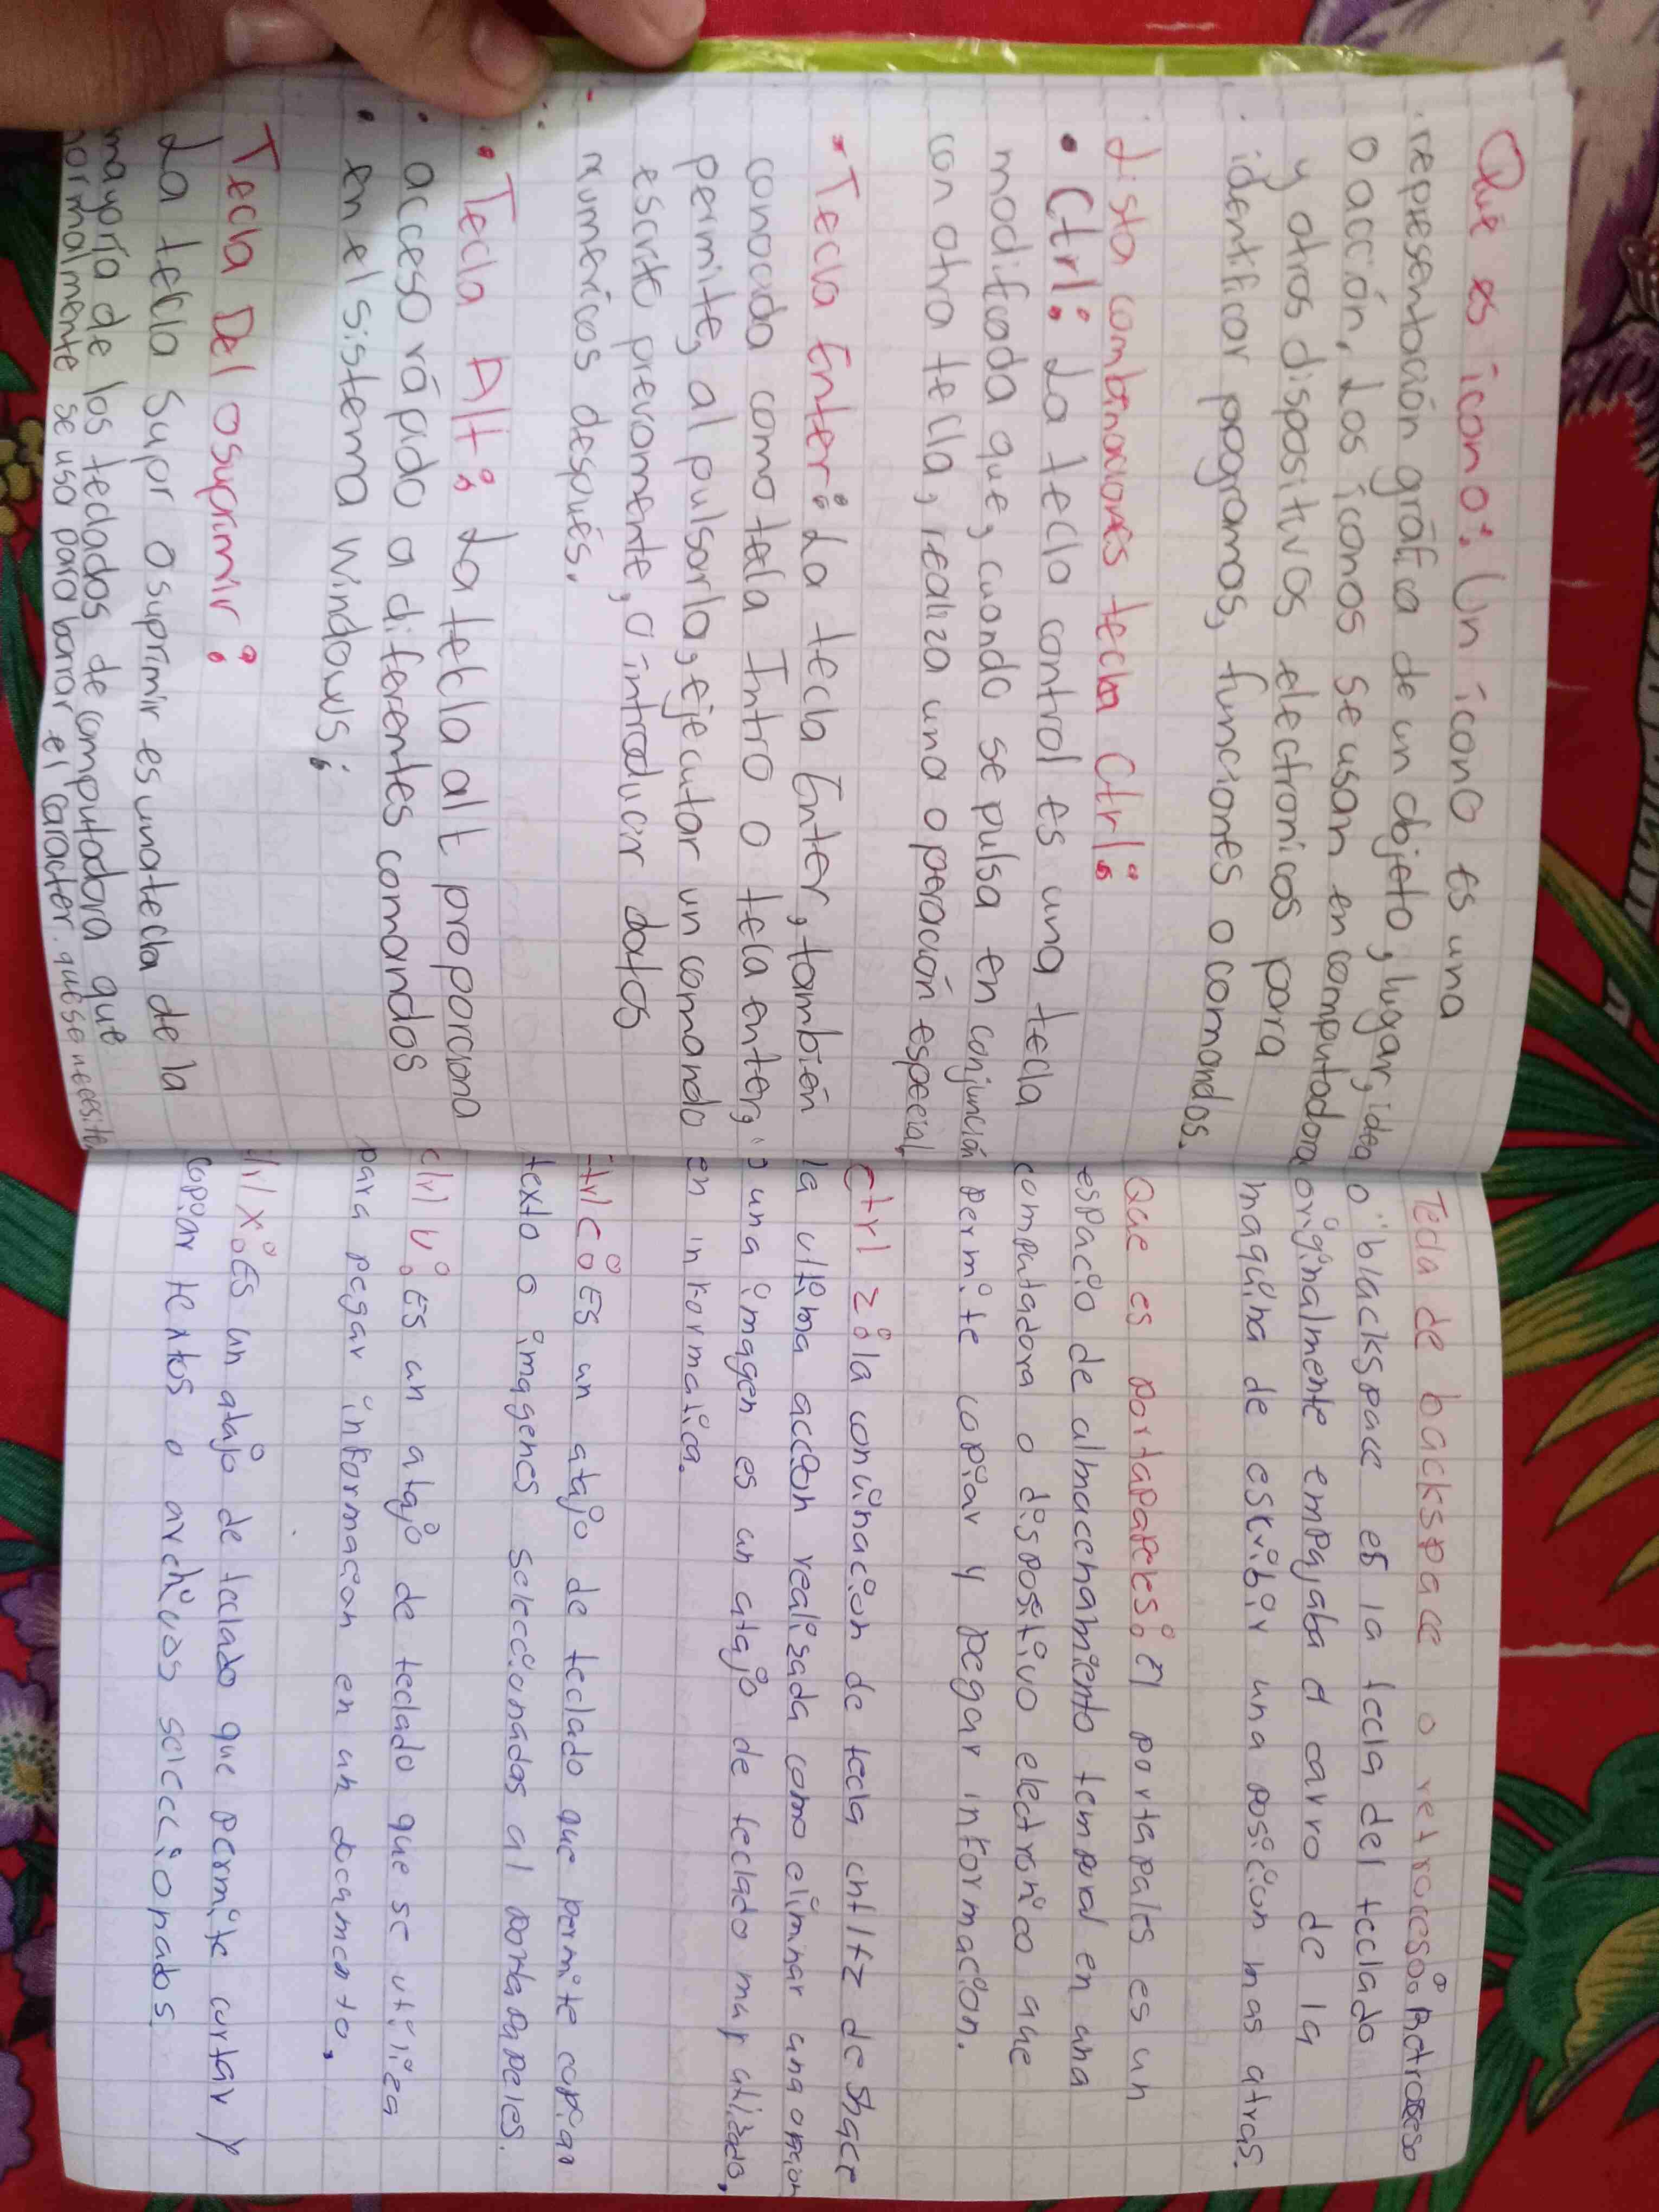 Que es icono: Un icono es una
representación gráfica de un objeto, lugar, idea
o acción, Los íconos se usan en computadora
y otros dispositivos electronicos para
identificar programos, funciones o comandos.
Lista combinaciones tecla Ctrl:
• Ctrl: La tecla control es una tecla
modificada que, cuando se pulsa en conjunción
con otra tecla, realiza una operación especial,
• Tecla Enter: La tecla Enter, también
conocida como tela Intro o tecla enter,
permite, al pulsarla, ejecutar un comando
escrito previomente, o introducir datos
numericos después.
• Tecla Alt: La tecla alt proporciona
acceso rápido a diferentes comandos
en el sistema Windows;
Tecla Del o suprimir:
La tecla Supr o suprimir es una tecla de la
mayoría de los teclados de computadora que
normalmente se usa para borrar el caracter que se necesite
Tecla de backspace o retroceso: Retroceso
o blackspace es la tecla del teclado
originalmente empajaba el carro de la
maquina de escribir una posicion mas atras.
Que es portapapeles: el portapales es un
espacio de almacenamiento temporal en una
computadora o dispositivo electronico que
permite copiar y pegar informacion.
ctrl z: la convinacion de tecla cntltz deshace
la ultima accion realisada como eliminar una oracion
o una imagen es un atajo de teclado muy utilizado,
en informatica.
ctrl c: Es un atajo de teclado que permite copiar
texto o imagenes seleccionadas al portapapeles.
ctrl v: Es un atajo de teclado que se utiliza
para pegar informacion en un documento,
ctrl x: Es un atajo de teclado que permite cortar y
copiar textos o archivos seleccionados.